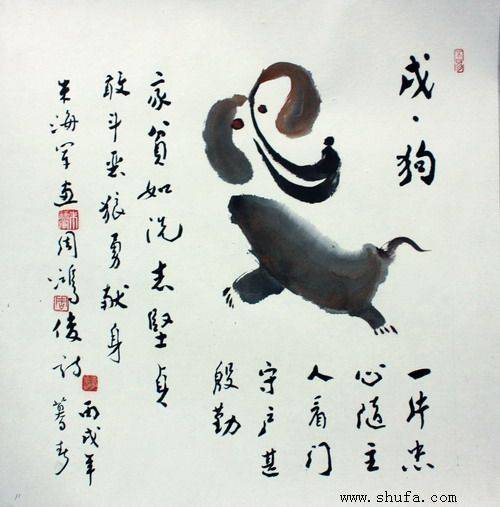 戌·狗
一片忠
心隨主
人看门
守户甚
殷勤
家貧如洗志堅貞
敢斗恶狼勇献身
米海軍画 周鴻俊诗
丙戌年
暮春
www.shufa.com